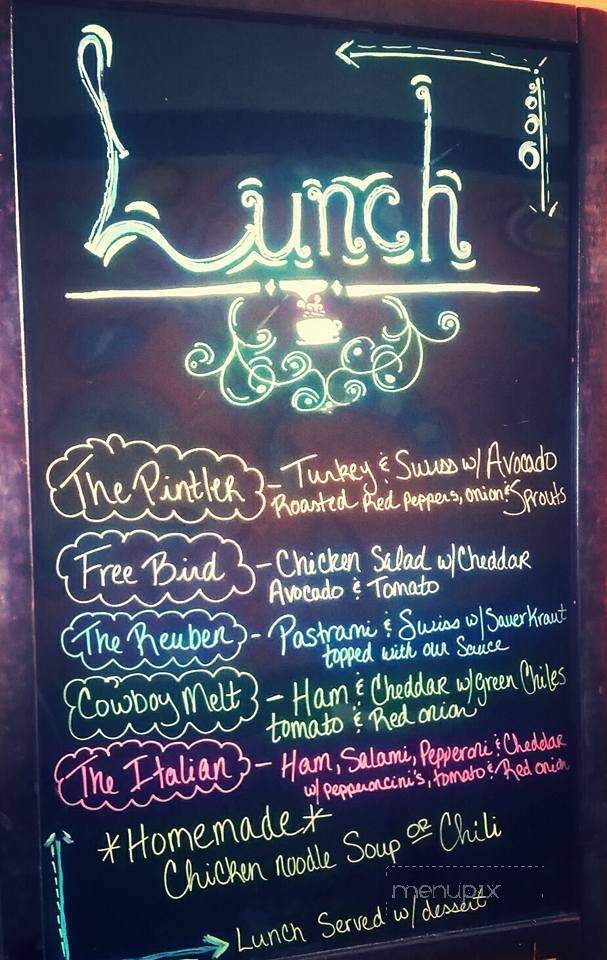 Lunch
The Pintler - Turkey & Swiss w/ Avocado
Roasted Red Peppers, onion & Sprouts
Free Bird - Chicken Salad w/ Cheddar
Avocado & Tomato
The Reuben - Pastrami & Swiss w/ SauerKraut
topped with our Sauce
Cowboy Melt - Ham & Cheddar w/ green Chiles
tomato & Red onion
The Italian - Ham, Salami, Pepperoni & Cheddar
w/ pepperoncini's, tomato & Red onion
*Homemade*
Chicken noodle Soup OR Chili
menupix
Lunch Served w/ dessert